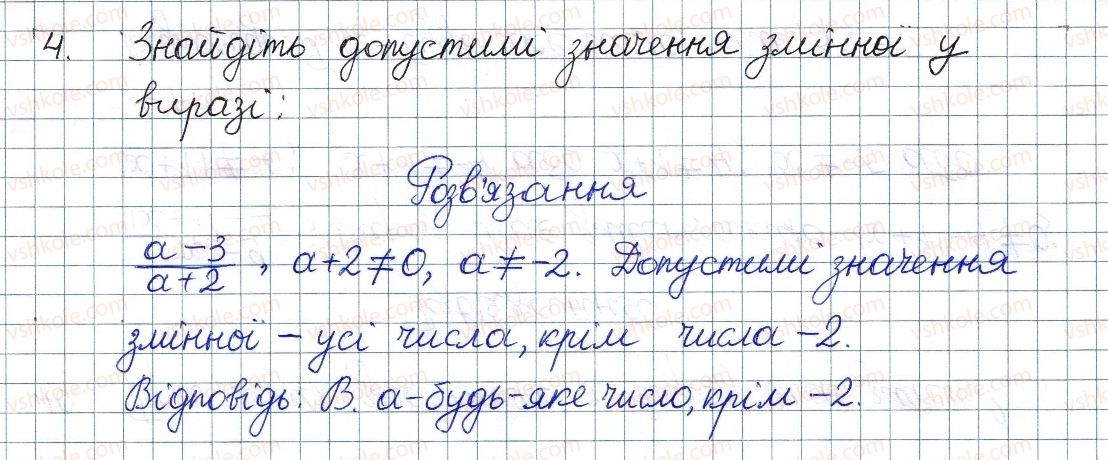 4. Знайдіть допустимі значення змінної у
виразі:
Розв'язання
a-3/a+2, a+2≠0, a≠-2. Допустимі значення
змінної – усі числа, крім числа -2.
Відповідь: В. a-будь-яке число, крім -2.